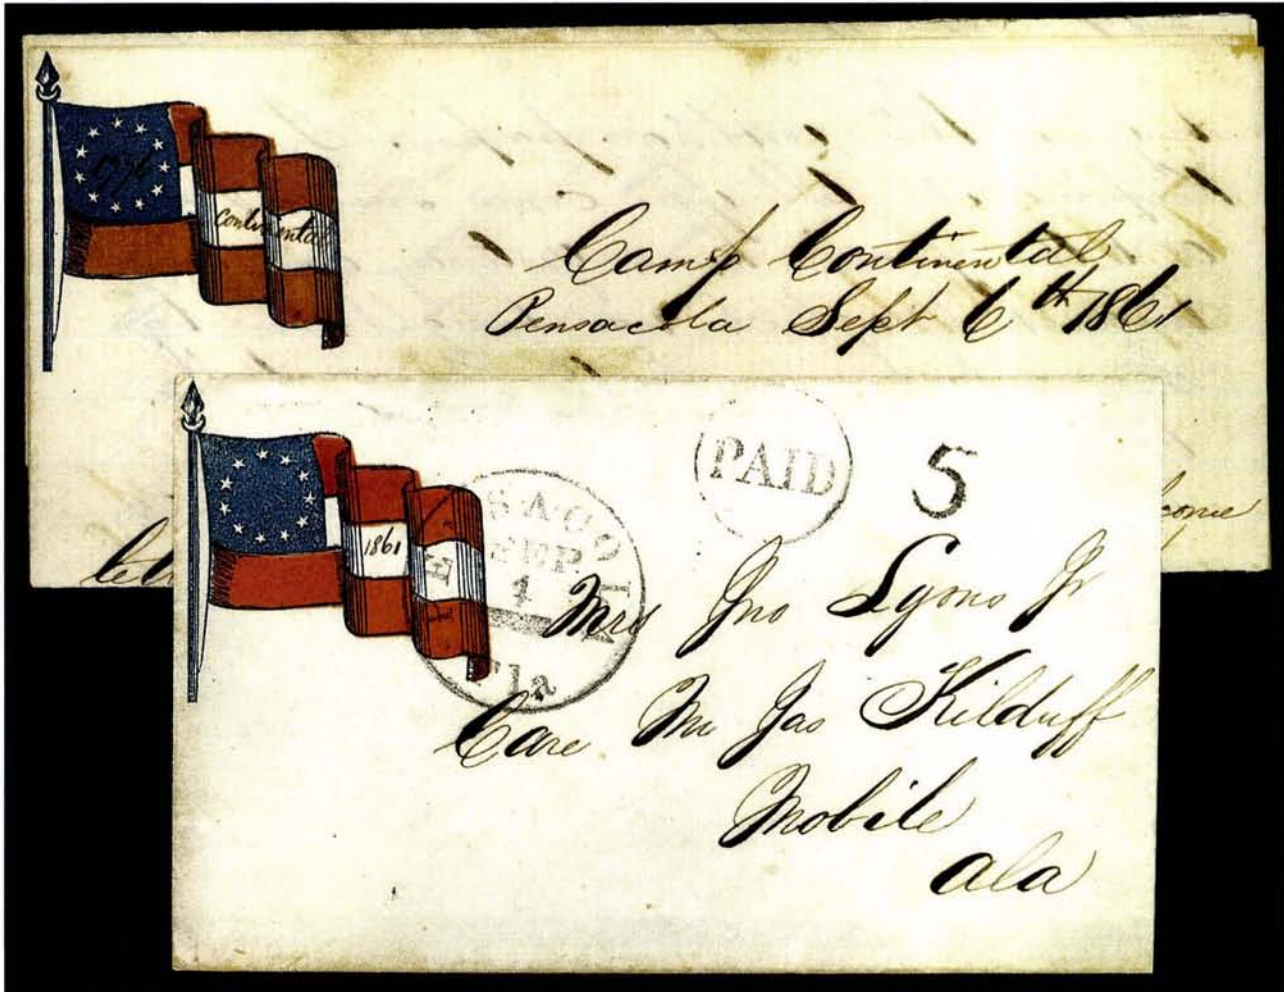 1776
Continental
Camp Continental
Pensacola Sept 6th 1861
come
PAID
5
PENSACOLA
SEP
4
Fla
1861
Mrs Jno Lyons Jr
Care Mr Jas Kilduff
Mobile
Ala